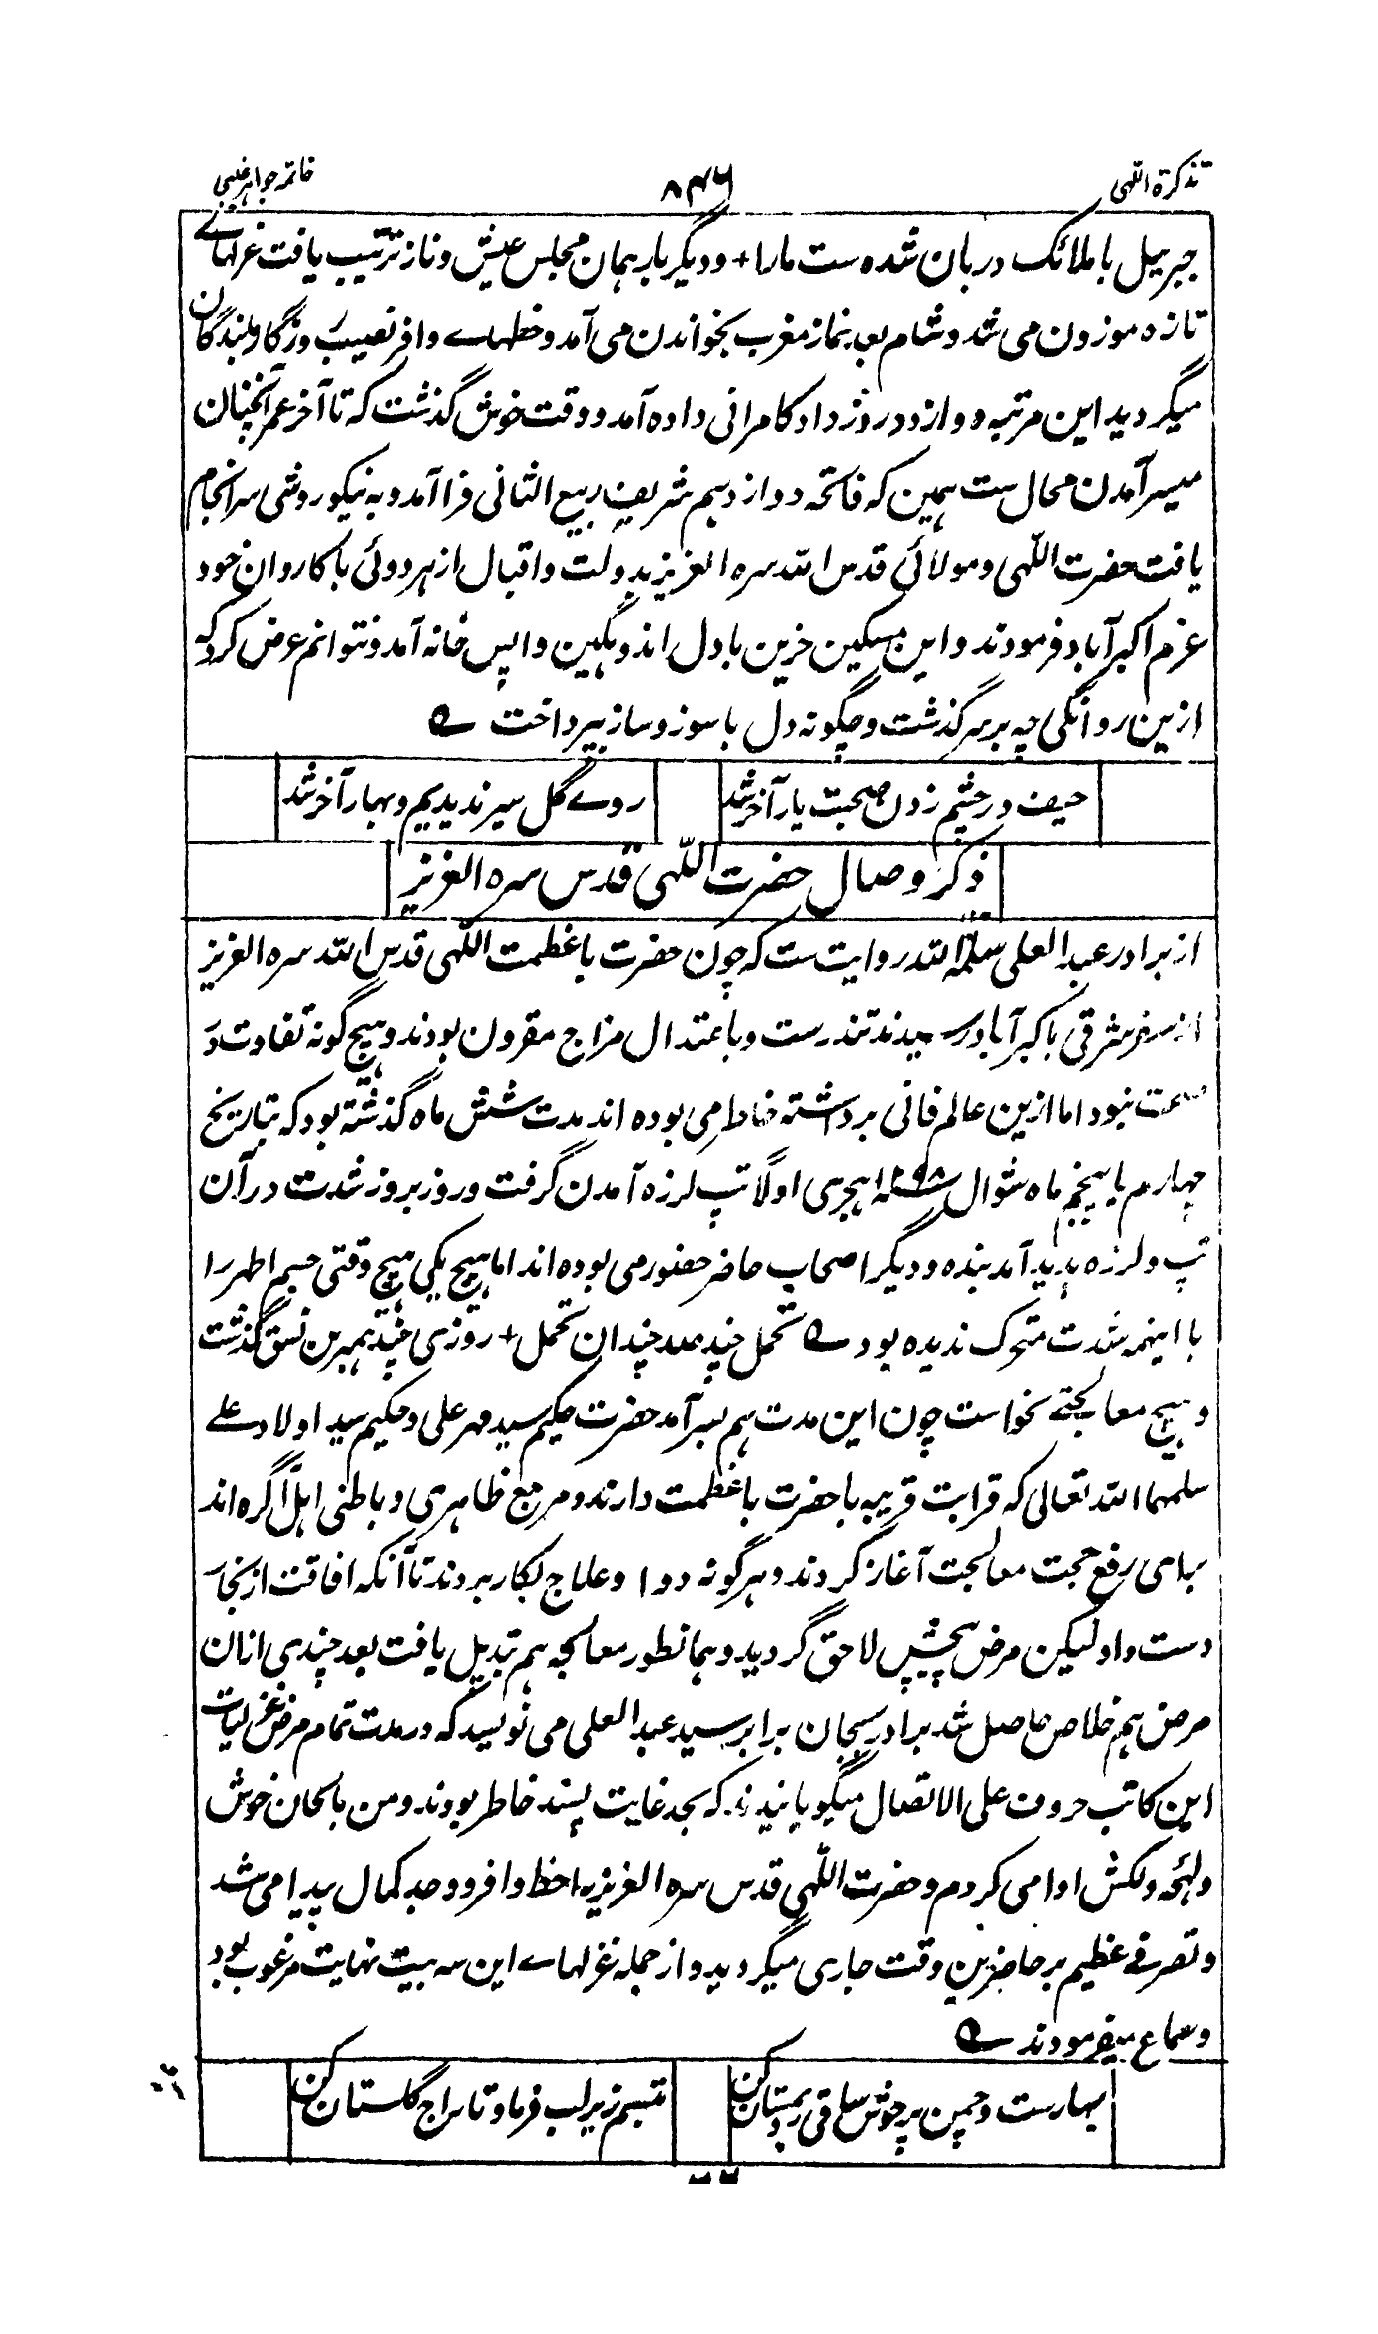 تذکرة اللهی
۸۴۶
خاتمه جواهر غیبی
جبرئیل با ملائک دربان شده ست مارا + و دیگر بار همان مجلس عیش و ناز ترتیب یافت غزلهائے
تازه موزون می شد و شام بعد نماز مغرب بخواندن می آمد و حظهاے وافر نصیب روزگار بندگان
میگردید این مرتبه دوازده روز داد کامرانی داده آمد و وقت خوش گذشت که تا آخر عمر آنچنان
میسر آمدن محال ست همین که فاتحه دوازدهم شریف ربیع الثانی فرا آمد و به نیکو روشی سرانجام
یافت حضرت اللهی و مولائی قدس الله سره العزیز بدولت و اقبال از هردوئی با کاروان خود
عزم اکبرآباد فرمودند و این مسکین حزین با دل اندوهگین واپس خانه آمد و نتوانم عرض کرد که
ازین روانگی چه بر سر گذشت و چگونه دل با سوز و ساز بپرداخت ے
حیف در چشم زدن صحبت یار آخر شد
روے گل سیر ندیدیم و بهار آخر شد
ذکر وصال حضرت اللهی قدس سره العزیز
از برادر عبد العلی سلمه الله روایت ست که چون حضرت با عظمت اللهی قدس الله سره العزیز
از سفر مشرقی باکبرآباد رسیدند تندرست و باعتدال مزاج مقرون بودند و هیچ گونه تفاوت در
صحت نبود اما ازین عالم فانی برداشته خاطر می بوده اند مدت شش ماه گذشته بود که بتاریخ
چهارم یا پنجم ماه شوال ۱۲۹۸ هجری اولاً تپ لرزه آمدن گرفت و روز بروز شدت در آن
تپ و لرزه پدید آمد بنده و دیگر اصحاب حاضر حضور می بوده اند اما هیچ یکی هیچ وقتی جسم اطهر را
با اینهمه شدت متحرک ندیده بود ے تحمل چند صد چندان تحمل + روزی چند همبرین نسق گذشت
و هیچ معالجتے نخواست چون این مدت هم بسر آمد حضرت حکیم سید مهر علی و حکیم سید اولاد علے
سلمهما الله تعالی که قرابت قریبه با حضرت با عظمت دارند و مرجع ظاهری و باطنی اهل آگره اند
برای رفع حجت معالجت آغاز کردند و هر گونه دوا و علاج بکار بردند تا آنکه افاقت از بخار
دست داد ولیکن مرض پیچش لاحق گردید و همانطور معالجه هم تبدیل یافت بعد چندی ازان
مرض هم خلاص حاصل شد برادر بجان برابر سید عبد العلی می نویسد که در مدت تمام مرض غزلیات
این کاتب حروف علی الاتصال میگویانیدند که بحد غایت پسند خاطر بودند و من بالحان خوش
و لهجه دلکش ادا می کردم و حضرت اللهی قدس سره العزیز را حظ وافر و وجد کمال پیدا می شد
و تصرفے عظیم بر حاضرین وقت جاری میگردید و از جمله غزلهاے این سه بیت نهایت مرغوب بود
و سماع میفرمودند ے
بهارست و چمن پر جوش ساقی رو بمستان کن
تبسم زیر لب فرما و تاراج گلستان کن